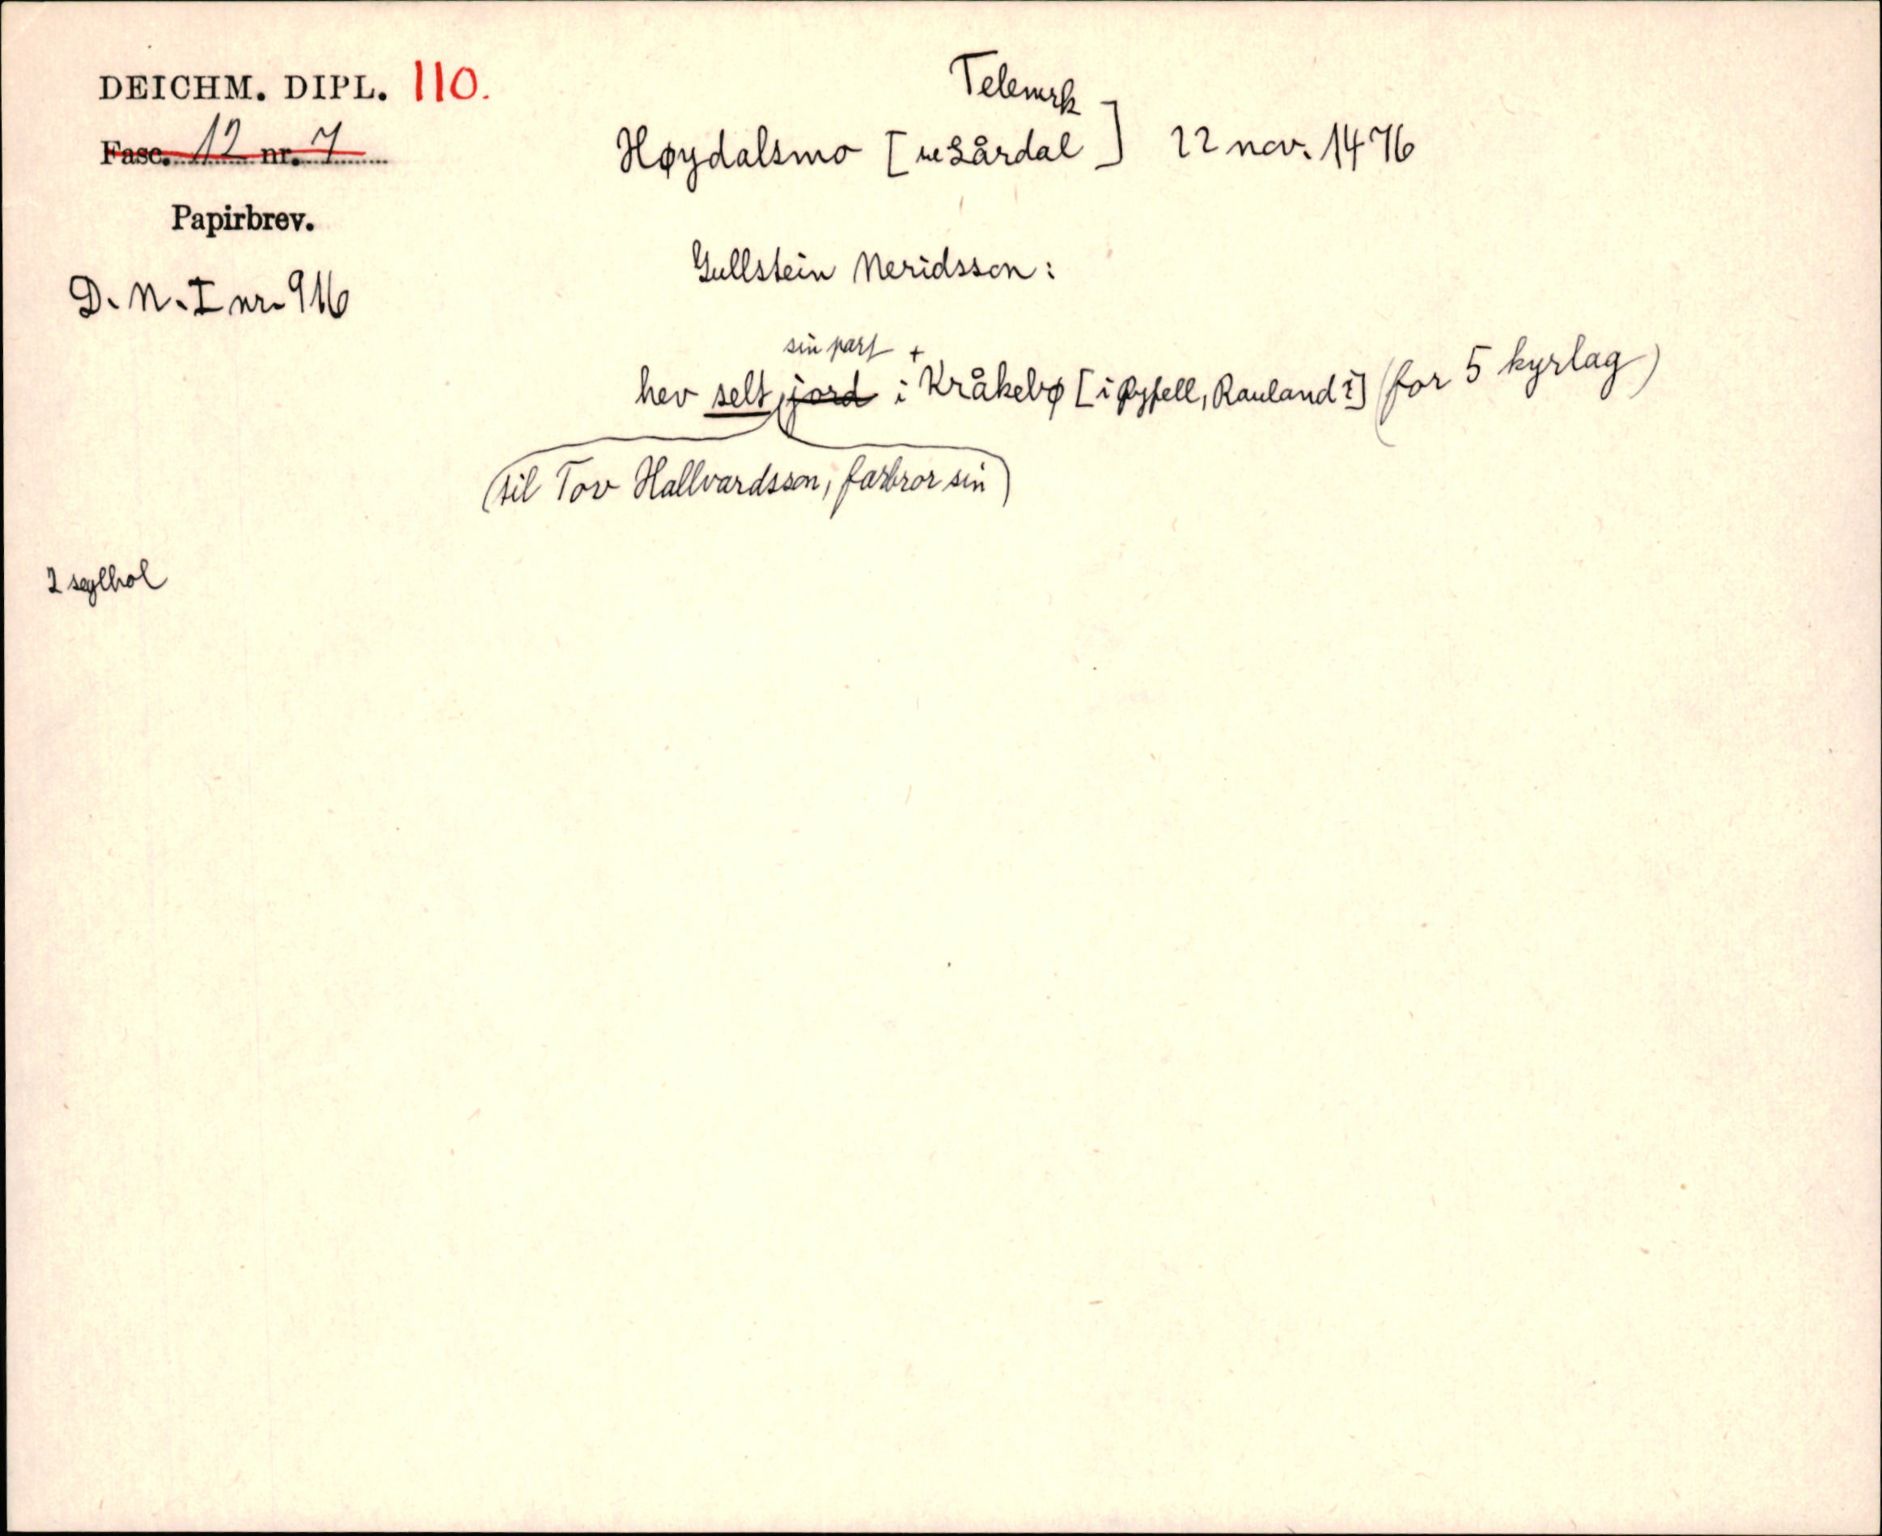 DEICHM. DIPL. 110.
Fasc. 12 nr. 7
Papirbrev.
D. N. I nr. 916
Telemrk
Høydalsmo [ Lårdal ] 22 nov. 1476
Gullstein Neridsson:
sin part +
hev selt jord i Kråkebø [i Øyfell, Rauland?] (for 5 kyrlag)
(til Tov Hallvardsson, farbror sin)
2 seglhol